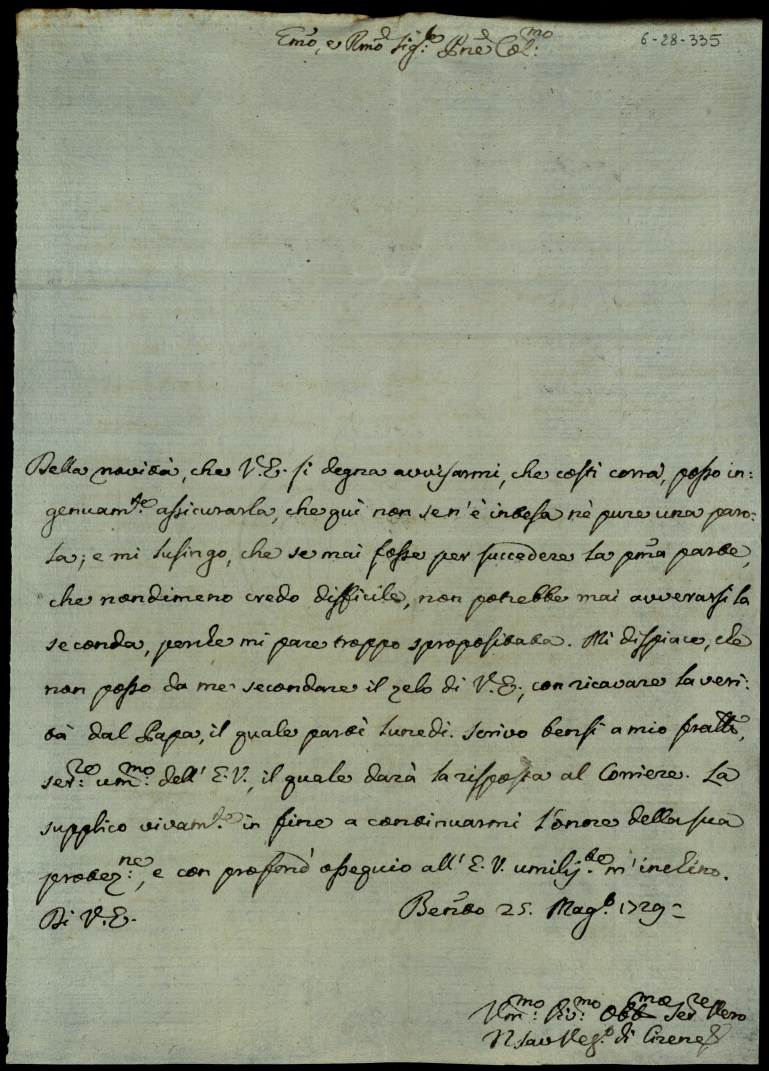 Emo, e Rmo Sig.r Pne Col.mo
6-28-335
Della novità, che V.E. si degna avvisarmi, che costì corra, posso in:
genuam.te assicurarla, che quì non se n'è intesa nè pure una paro:
la; e mi lusingo, che se mai fosse per succedere la pma parte,
che nondimeno credo difficile, non potrebbe mai avverarsi la
seconda, perche mi pare troppo spropositata. Mi dispiace, che
non posso da me secondare il zelo di V.E., con ricavare la veri:
tà dal Papa, il quale partì lunedì. Scrivo bensì a mio fratllo,
ser.re um.mo dell' E.V., il quale darà la risposta al Corriere. La
supplico vivam.te in fine a continuarmi l'onore della sua
protez.ne, e con profond° ossequio all' E.V. umilis.te m'inchino.
Di V.E.
Benẽto 25. Mag.o 1729
Um.mo Div.mo Obb.mo Ser.re Vero
N Sav di Cirene